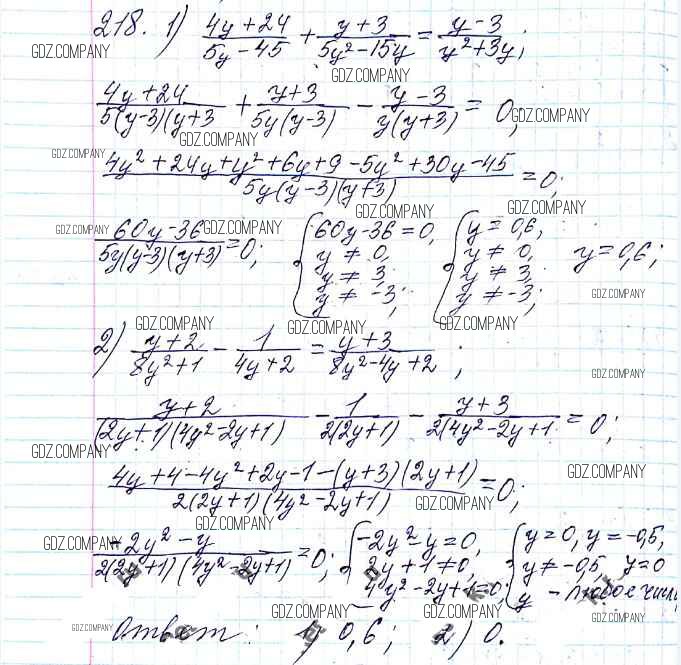 218. 1) (4y+24)/(5y-45) + (y+3)/(5y²-15y) = (y-3)/(y²+3y);
GDZ.COMPANY GDZ.COMPANY
(4y+24)/(5(y-3)(y+3) + (y+3)/(5y(y-3)) - (y-3)/(y(y+3)) = 0;
GDZ.COMPANY GDZ.COMPANY
GDZ.COMPANY (4y²+24y+y²+6y+9-5y²+30y-45)/(5y(y-3)(y+3)) = 0;
GDZ.COMPANY GDZ.COMPANY
GDZ.COMPANY GDZ.COMPANY
(60y-36)/(5y(y-3)(y+3)) = 0; { 60y-36=0, { y=0,6,
y≠0, y≠0, y=0,6;
y≠3, y≠3,
y≠-3; y≠-3;
GDZ.COMPANY
GDZ.COMPANY GDZ.COMPANY GDZ.COMPANY
2) (y+2)/(8y²+1) - 1/(4y+2) = (y+3)/(8y²-4y+2);
GDZ.COMPANY
(y+2)/((2y+1)(4y²-2y+1)) - 1/(2(2y+1)) - (y+3)/(2(4y²-2y+1) = 0;
GDZ.COMPANY GDZ.COMPANY
(4y+4-4y²+2y-1-(y+3)(2y+1))/(2(2y+1)(4y²-2y+1)) = 0;
GDZ.COMPANY GDZ.COMPANY
GDZ.COMPANY GDZ.COMPANY
(-2y²-y)/(2(2y+1)(4y²-2y+1)) = 0; { -2y²-y=0, { y=0, y=-0,5,
2y+1≠0, y≠-0,5, y=0
4y²-2y+1=0; y - любое
GDZ.COMPANY GDZ.COMPANY GDZ.COMPANY
GDZ.COMPANY Ответ: 1) 0,6; 2) 0.